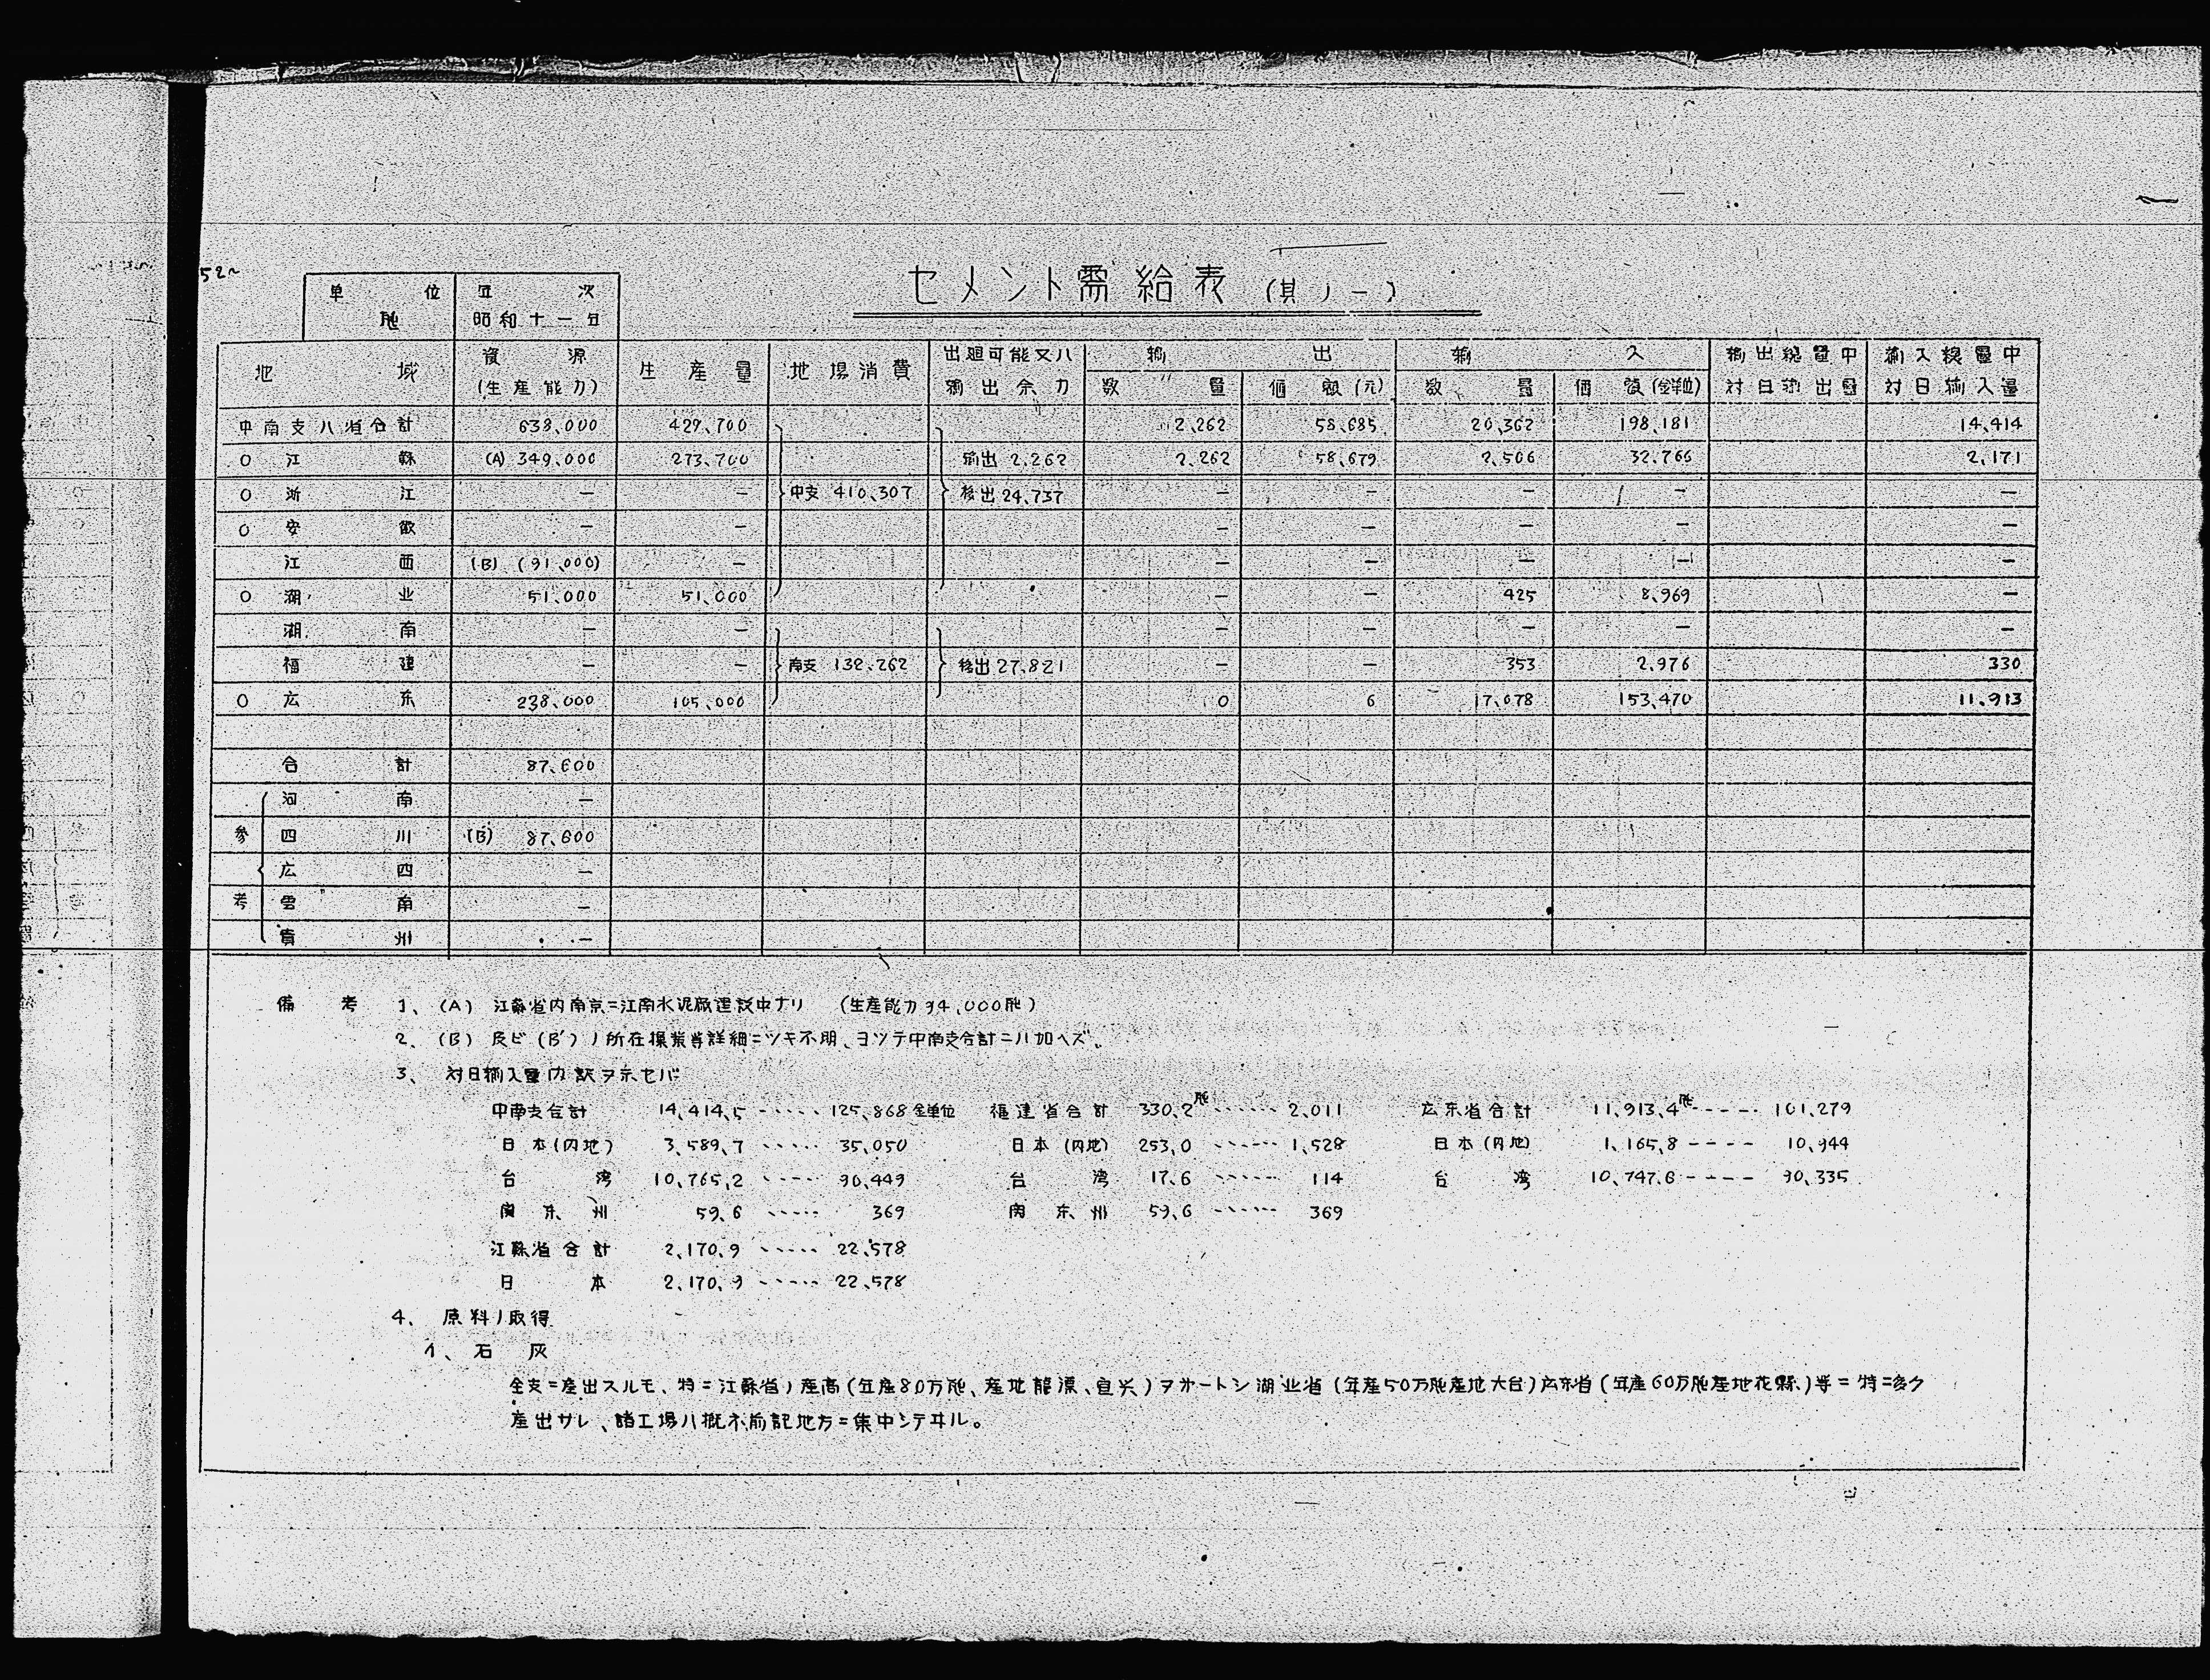 52~
セメント需給表 (其ノ一)
単位 瓲 年次 昭和十一年
地域 資源(生産能力) 生産量 地場消費 出廻可能又ハ輸出余力 輸出 数量 価額(元) 輸入 数量 価額(金単位) 輸出総量中対日輸出量 輸入総量中対日輸入量
中南支八省合計 638,000 429,700 2,262 58,685 20,362 198,181 14,414
○ 江蘇 (A) 349,000 273,700 輸出 2,262 2,262 58,679 2,506 32,766 2,171
○ 浙江 — — 中支 410,307 移出 24,737 — — — — —
○ 安徽 — — — — — — —
江西 (B) (91,000) — — — — — —
○ 湖北 51,000 51,000 — — 425 8,969 —
湖南 — — — — — — —
福建 — — 南支 132,262 移出 27,821 — — 353 2,976 330
○ 広东 238,000 105,000 0 6 17,078 153,470 11,913
合計 87,600
参考
河南 —
四川 (B) 87,600
広西 —
雲南 —
貴州 —
備考 1、(A) 江蘇省内南京ニ江南水泥廠建設中ナリ (生産能力 94,000瓲)
2、(B) 及ビ (B′) ノ所在操業等詳細ニツキ不明、ヨツテ中南支合計ニハ加ヘズ、
3、対日輸入量内訳ヲ示セバ
中南支合計 14,414,5 ····· 125,868金単位 福建省合計 330,2瓲 ······ 2,011 広东省合計 11,913,4瓲 ----- 101,279
日本(内地) 3,589,7 ····· 35,050 日本(内地) 253,0 ······ 1,528 日本(内地) 1,165,8 ---- 10,944
台湾 10,765,2 ····· 90,449 台湾 17,6 ······ 114 台湾 10,747,6 ---- 90,335
関东州 59,6 ····· 369 関东州 59,6 ······ 369
江蘇省合計 2,170,9 ····· 22,578
日本 2,170,9 ····· 22,578
4、原料ノ取得
イ、石灰
全支ニ産出スルモ、特ニ江蘇省ノ産高(年産80万瓲、産地龍潭、)ヲ トシ湖北省(年産50万瓲産地大台)広东省(年産60万瓲産地花縣)等ニ特ニ多ク
産出サレ、諸工場ハ概ネ前記地方ニ集中シテヰル。